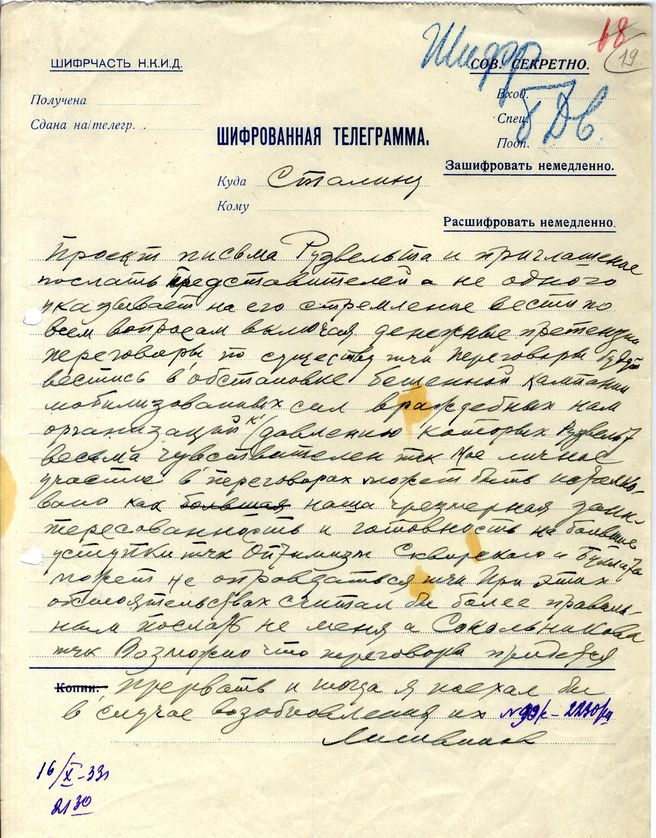 Шифр
68
19
ШИФРЧАСТЬ Н.К.И.Д.
СОВ. СЕКРЕТНО.
Получена
Вход.
Сдана на/телегр.
Спец.
ШИФРОВАННАЯ ТЕЛЕГРАММА.
Подп.
Зашифровать немедленно.
Куда Сталину
Кому
Расшифровать немедленно.
Проект письма Рузвельта и приглашение
послать представителей а не одного
указывает на его стремление вести по
всем вопросам включая денежные претензии
переговоры по существу тчк Переговоры будут
вестись в обстановке бешенной кампании
мобилизованных сил враждебных нам
организаций к давлению которых Рузвельт
весьма чувствителен тчк Мое личное
участие в переговорах может быть истолко-
вано как большая наша чрезмерная заин-
тересованность и готовность на большие
уступки тчк Оптимизм Сквирского и Буллита
может не оправдаться тчк При этих
обстоятельствах считал бы более правиль-
ным послать не меня а Сокольникова
тчк Возможно что переговоры придется
Копии: прервать и тогда я поехал бы
в случае возобновления их
Литвинов
16/X-33г
21 30